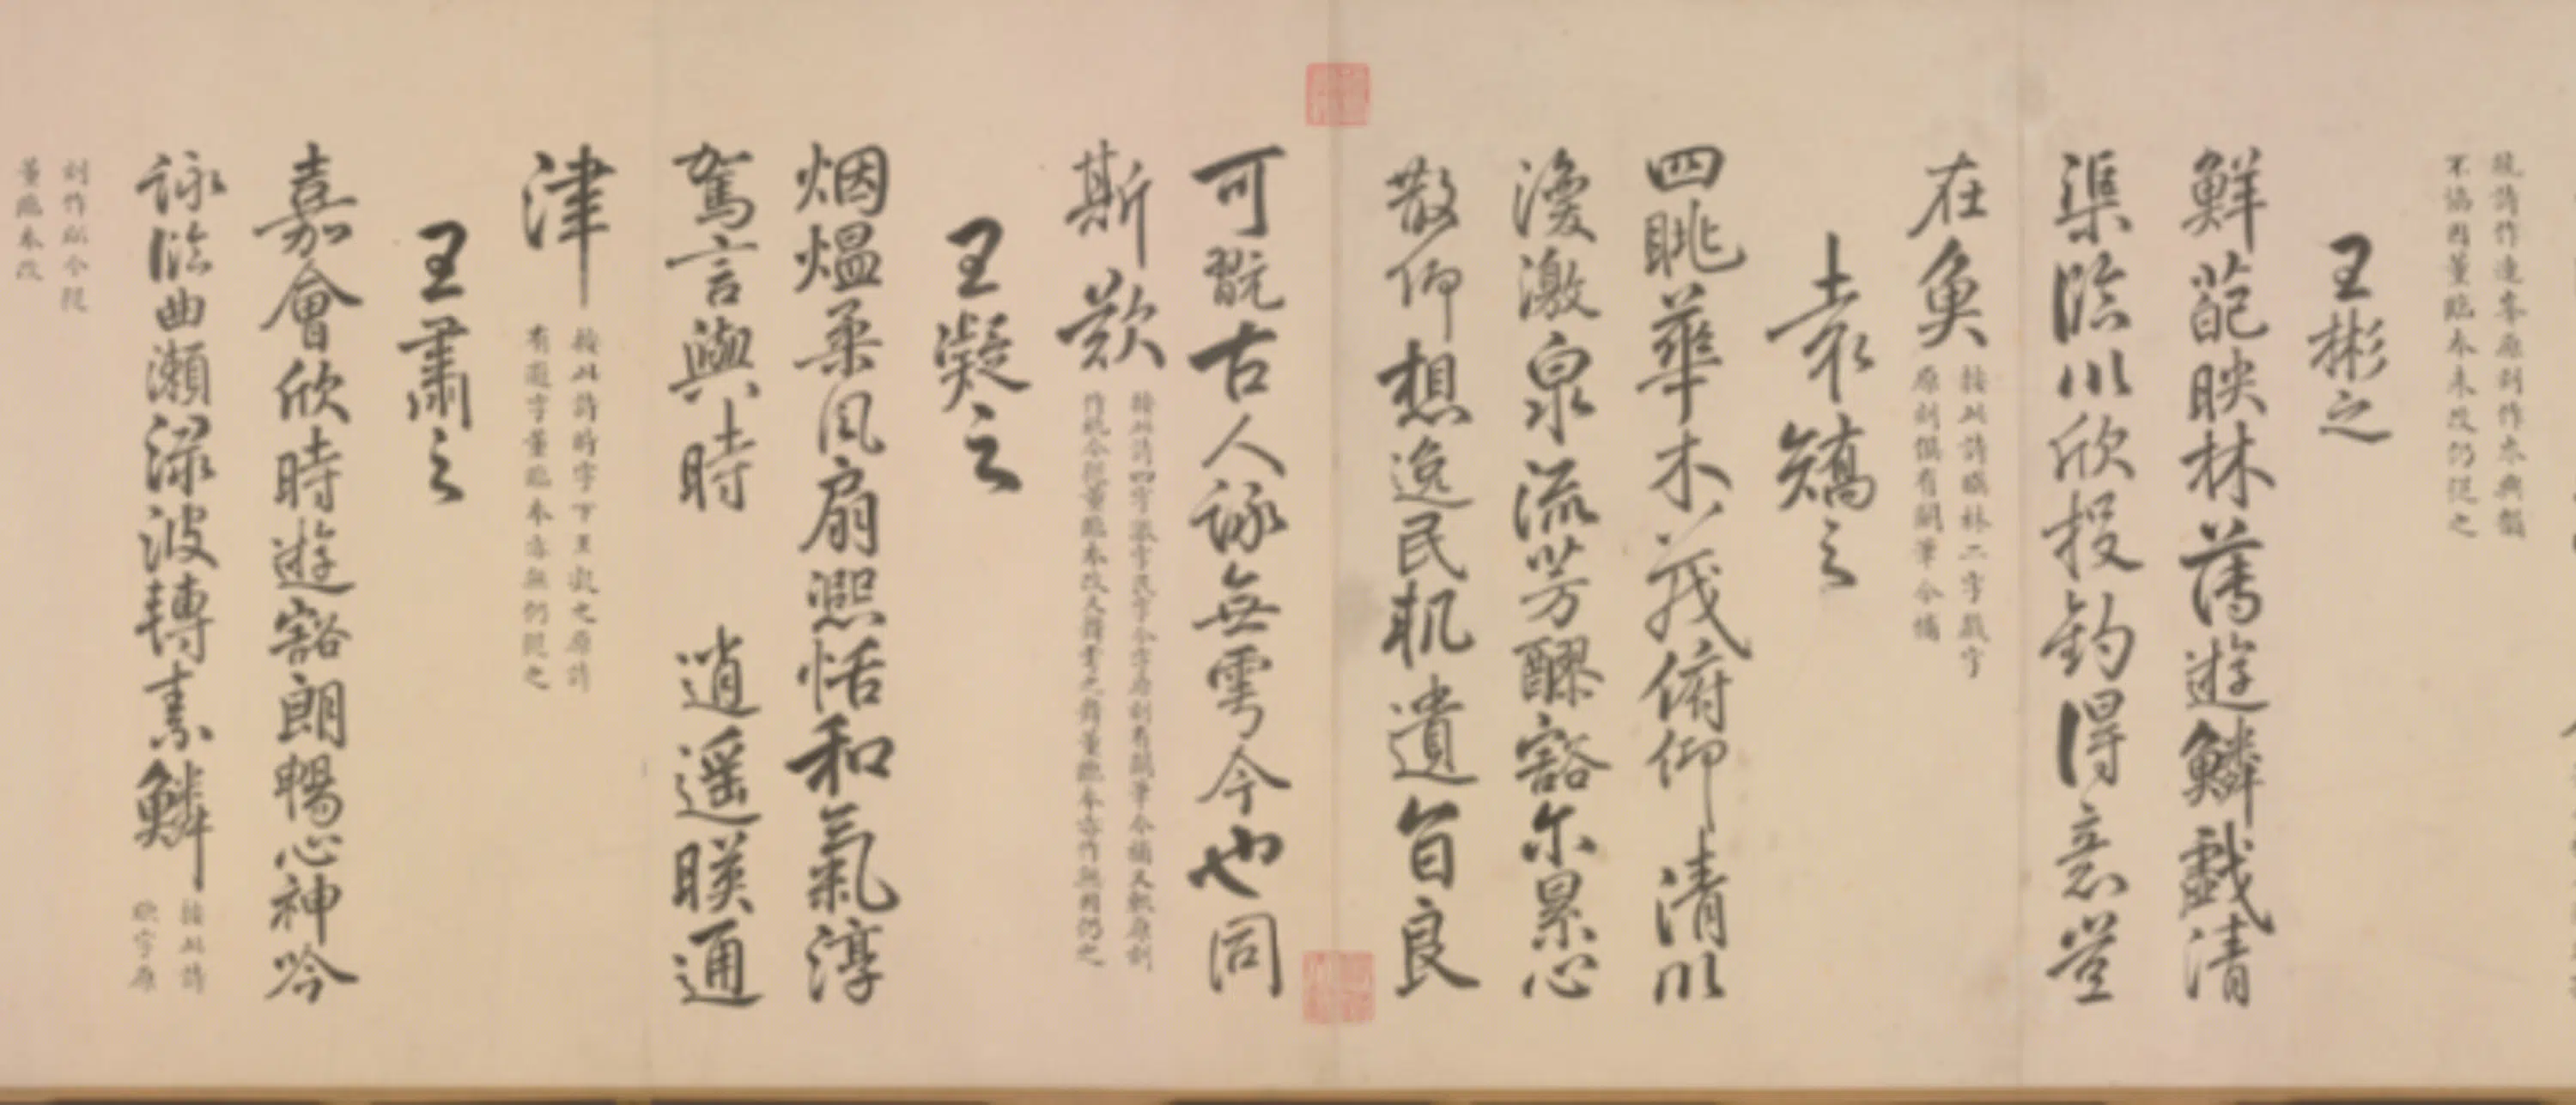 不協因董臨本未改仍從之
王彬之
鮮葩映林薄遊鱗戲清
渠臨川欣投釣得意豈
在魚
按此詩映林二字戲字
原刻俱有闕筆今補
袁矯之
四眺華木茂俯仰清川
渙激泉流芳醪豁尔累心
散仰想逸民軌遺旨良
可翫古人詠無雩今也同
斯歎
按此詩四字激字民字今字原刻有闕筆今補又軌原刻
作軏今從董臨本改又舞雩之舞董臨本亦作無因仍之
王凝之
烟熅柔風扇熙恬和氣淳
駕言興時 逍遥暎通
津
按此詩時字下攷之原詩
有遊字董臨本亦無仍從之
王肅之
嘉會欣時遊豁朗暢心神吟
詠臨曲瀨渌波轉素鱗
按此詩
字原
刻作今從
董臨本改